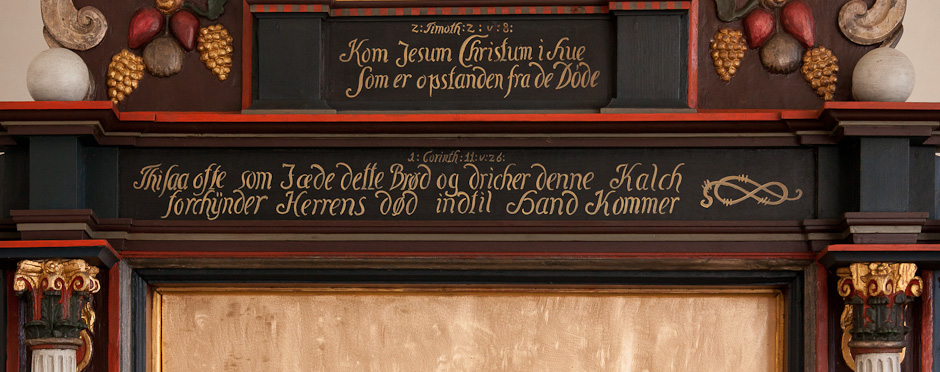 2: Timoth: 2: v: 8:
Kom Jesum Christum i hue
som er opstanden fra de Döde
1: Corinth: 11: v: 26:
Thi saa ofte som I æde dette Brød og dricher denne Kalch
forchÿnder Herrens død indtil Hand Kommer